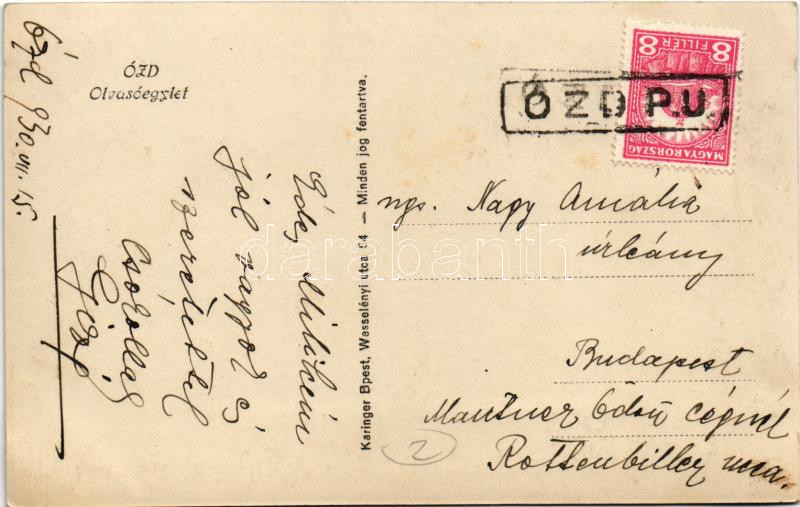 ÓZD
Olvasóegylet
Ózd 930. VIII. 15.
Édes Milikém
jól vagyok és
szeretettel
csókollak
Karinger Bpest, Wesselényi utca 54 — Minden jog fentartva.
8 FILLÉR 8
MAGYARORSZÁG
ÓZD P.U.
ngs. Nagy Amália
úrleány
Budapest
Mautner Ödön cégnél
Rottenbiller ucca.
2
darabanth